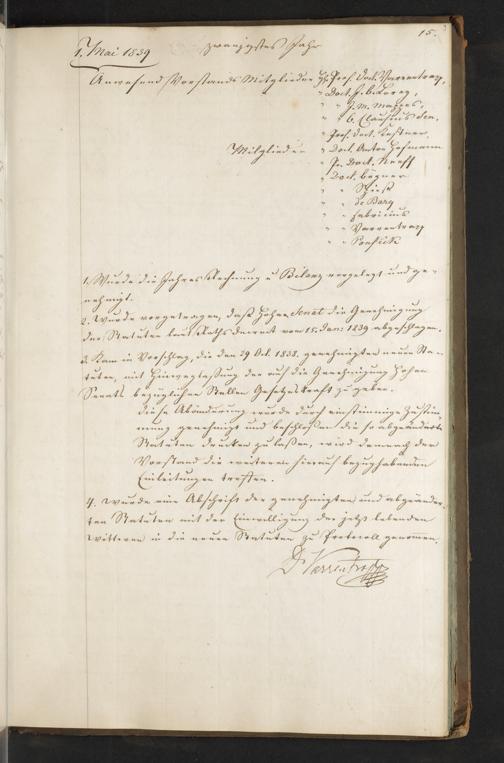 15.
1. Mai 1839 zwanzigstes Jahr
Anwesend Vorstands Mitglieder HH Prof. Doct. Varrentrapp,
" Doct. G. C. Lorey,
" " J. M. Mappes,
" " C. Clausius
" Prof. Doct. Kestner,
Mitglieder " Doct. Anton Hofmann
" Pr. Doct. Neeff
" Doct. Bögner
" " Spiess
" " de Bary
" " Fabricius
" " Varrentrapp
" " Ponfick
1. Wurde die Jahres Rechnung u Bilanz vorgelegt und ge-
nehmigt.
2. Wurde vorgetragen, daß Hoher Senat die Genehmigung
der Statuten laut Raths Decret vom 15. Jan: 1839 abgeschlagen.
3. Kam in Vorschlag, die den 29 Oct. 1838. genehmigten neuen Sta-
tuten, mit Hinweglassung der auf die Genehmigung Hohen
Senats bezüglichen Stellen Gesetzeskraft zu geben.
Diese Abänderung wurde durch einstimmige Zustim-
mung genehmigt und beschlossen die so abgeänderten
Statuten drucken zu laßen, wird demnach der
Vorstand die weiteren hierauf bezughabenden
Einleitungen treffen.
4. Wurde eine Abschrift der genehmigten und abgeänder-
ten Statuten mit der Einwilligung der jetzt lebenden
Wittwen in die neuen Statuten zu Protocoll genomen.
Dr Varrentrapp